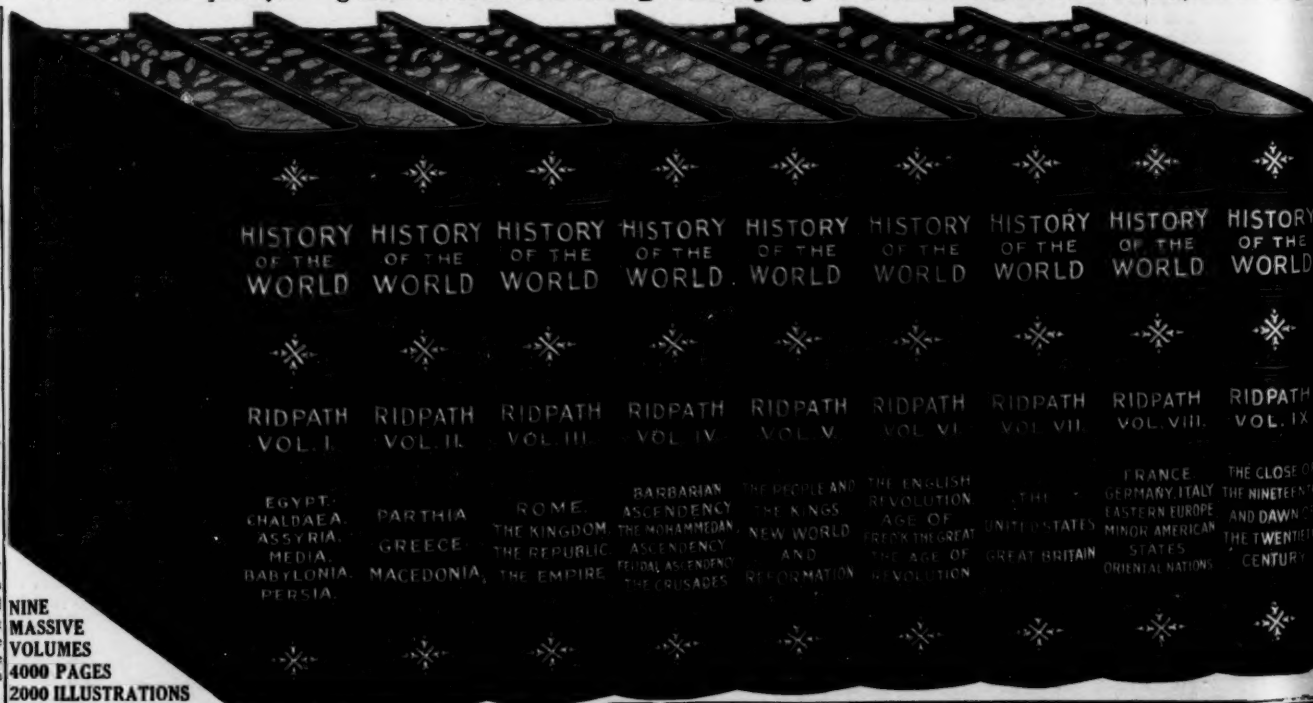 HISTORY
OF THE
WORLD
RIDPATH
VOL. I.
EGYPT.
CHALDAEA.
ASSYRIA.
MEDIA.
BABYLONIA.
PERSIA.
HISTORY
OF THE
WORLD
RIDPATH
VOL. II.
PARTHIA
GREECE
MACEDONIA.
HISTORY
OF THE
WORLD
RIDPATH
VOL. III.
ROME.
THE KINGDOM.
THE REPUBLIC.
THE EMPIRE
HISTORY
OF THE
WORLD
RIDPATH
VOL. IV.
BARBARIAN
ASCENDENCY
THE MOHAMMEDAN
ASCENDENCY
FEUDAL ASCENDENCY
THE CRUSADES
HISTORY
OF THE
WORLD
RIDPATH
VOL. V.
THE PEOPLE AND
THE KINGS
NEW WORLD
AND
REFORMATION
HISTORY
OF THE
WORLD
RIDPATH
VOL. VI.
THE ENGLISH
REVOLUTION
AGE OF
FRED'K THE GREAT
THE AGE OF
REVOLUTION
HISTORY
OF THE
WORLD
RIDPATH
VOL. VII.
THE
UNITED STATES
GREAT BRITAIN
HISTORY
OF THE
WORLD
RIDPATH
VOL. VIII.
FRANCE
GERMANY, ITALY
EASTERN EUROPE
MINOR AMERICAN
STATES
ORIENTAL NATIONS
HISTORY
OF THE
WORLD
RIDPATH
VOL. IX
THE CLOSE O
THE NINETEEN
AND DAWN
THE TWENTIE
CENTURY
NINE
MASSIVE
VOLUMES
4000 PAGES
2000 ILLUSTRATIONS